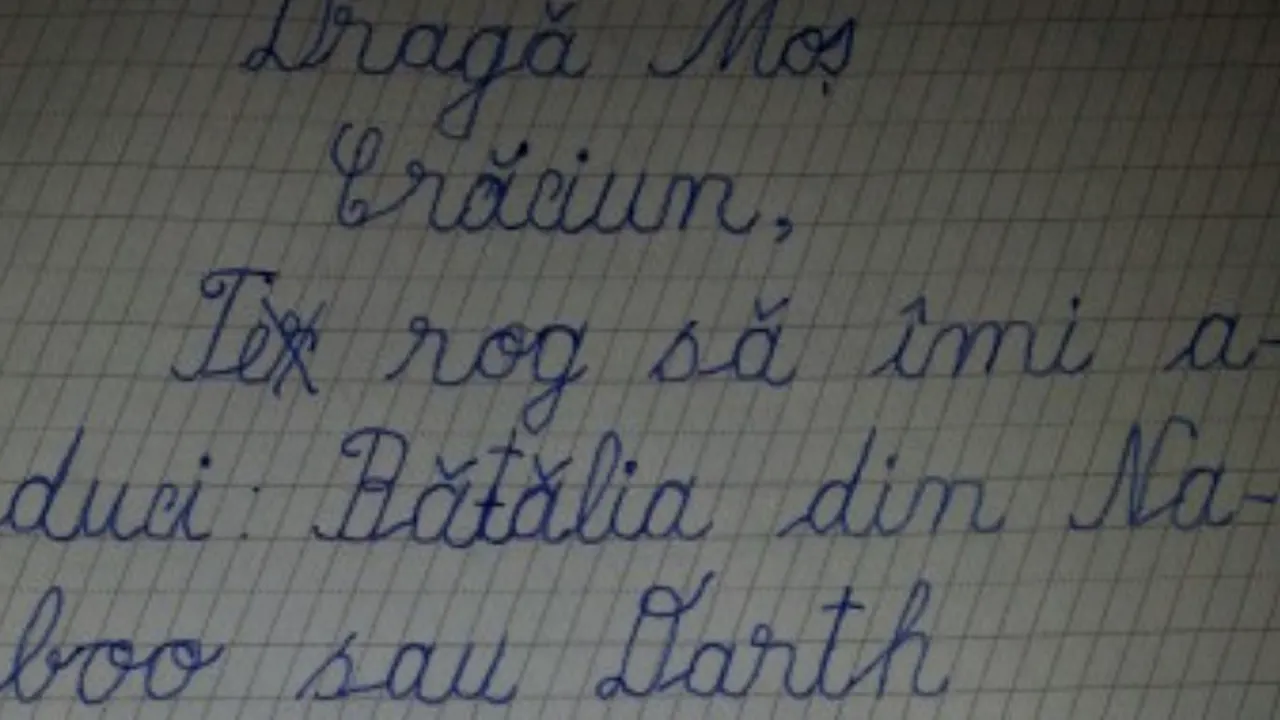 Dragă Moș
Crăciun,
Te rog să îmi a-
duci: Bătălia din Na-
boo sau Darth